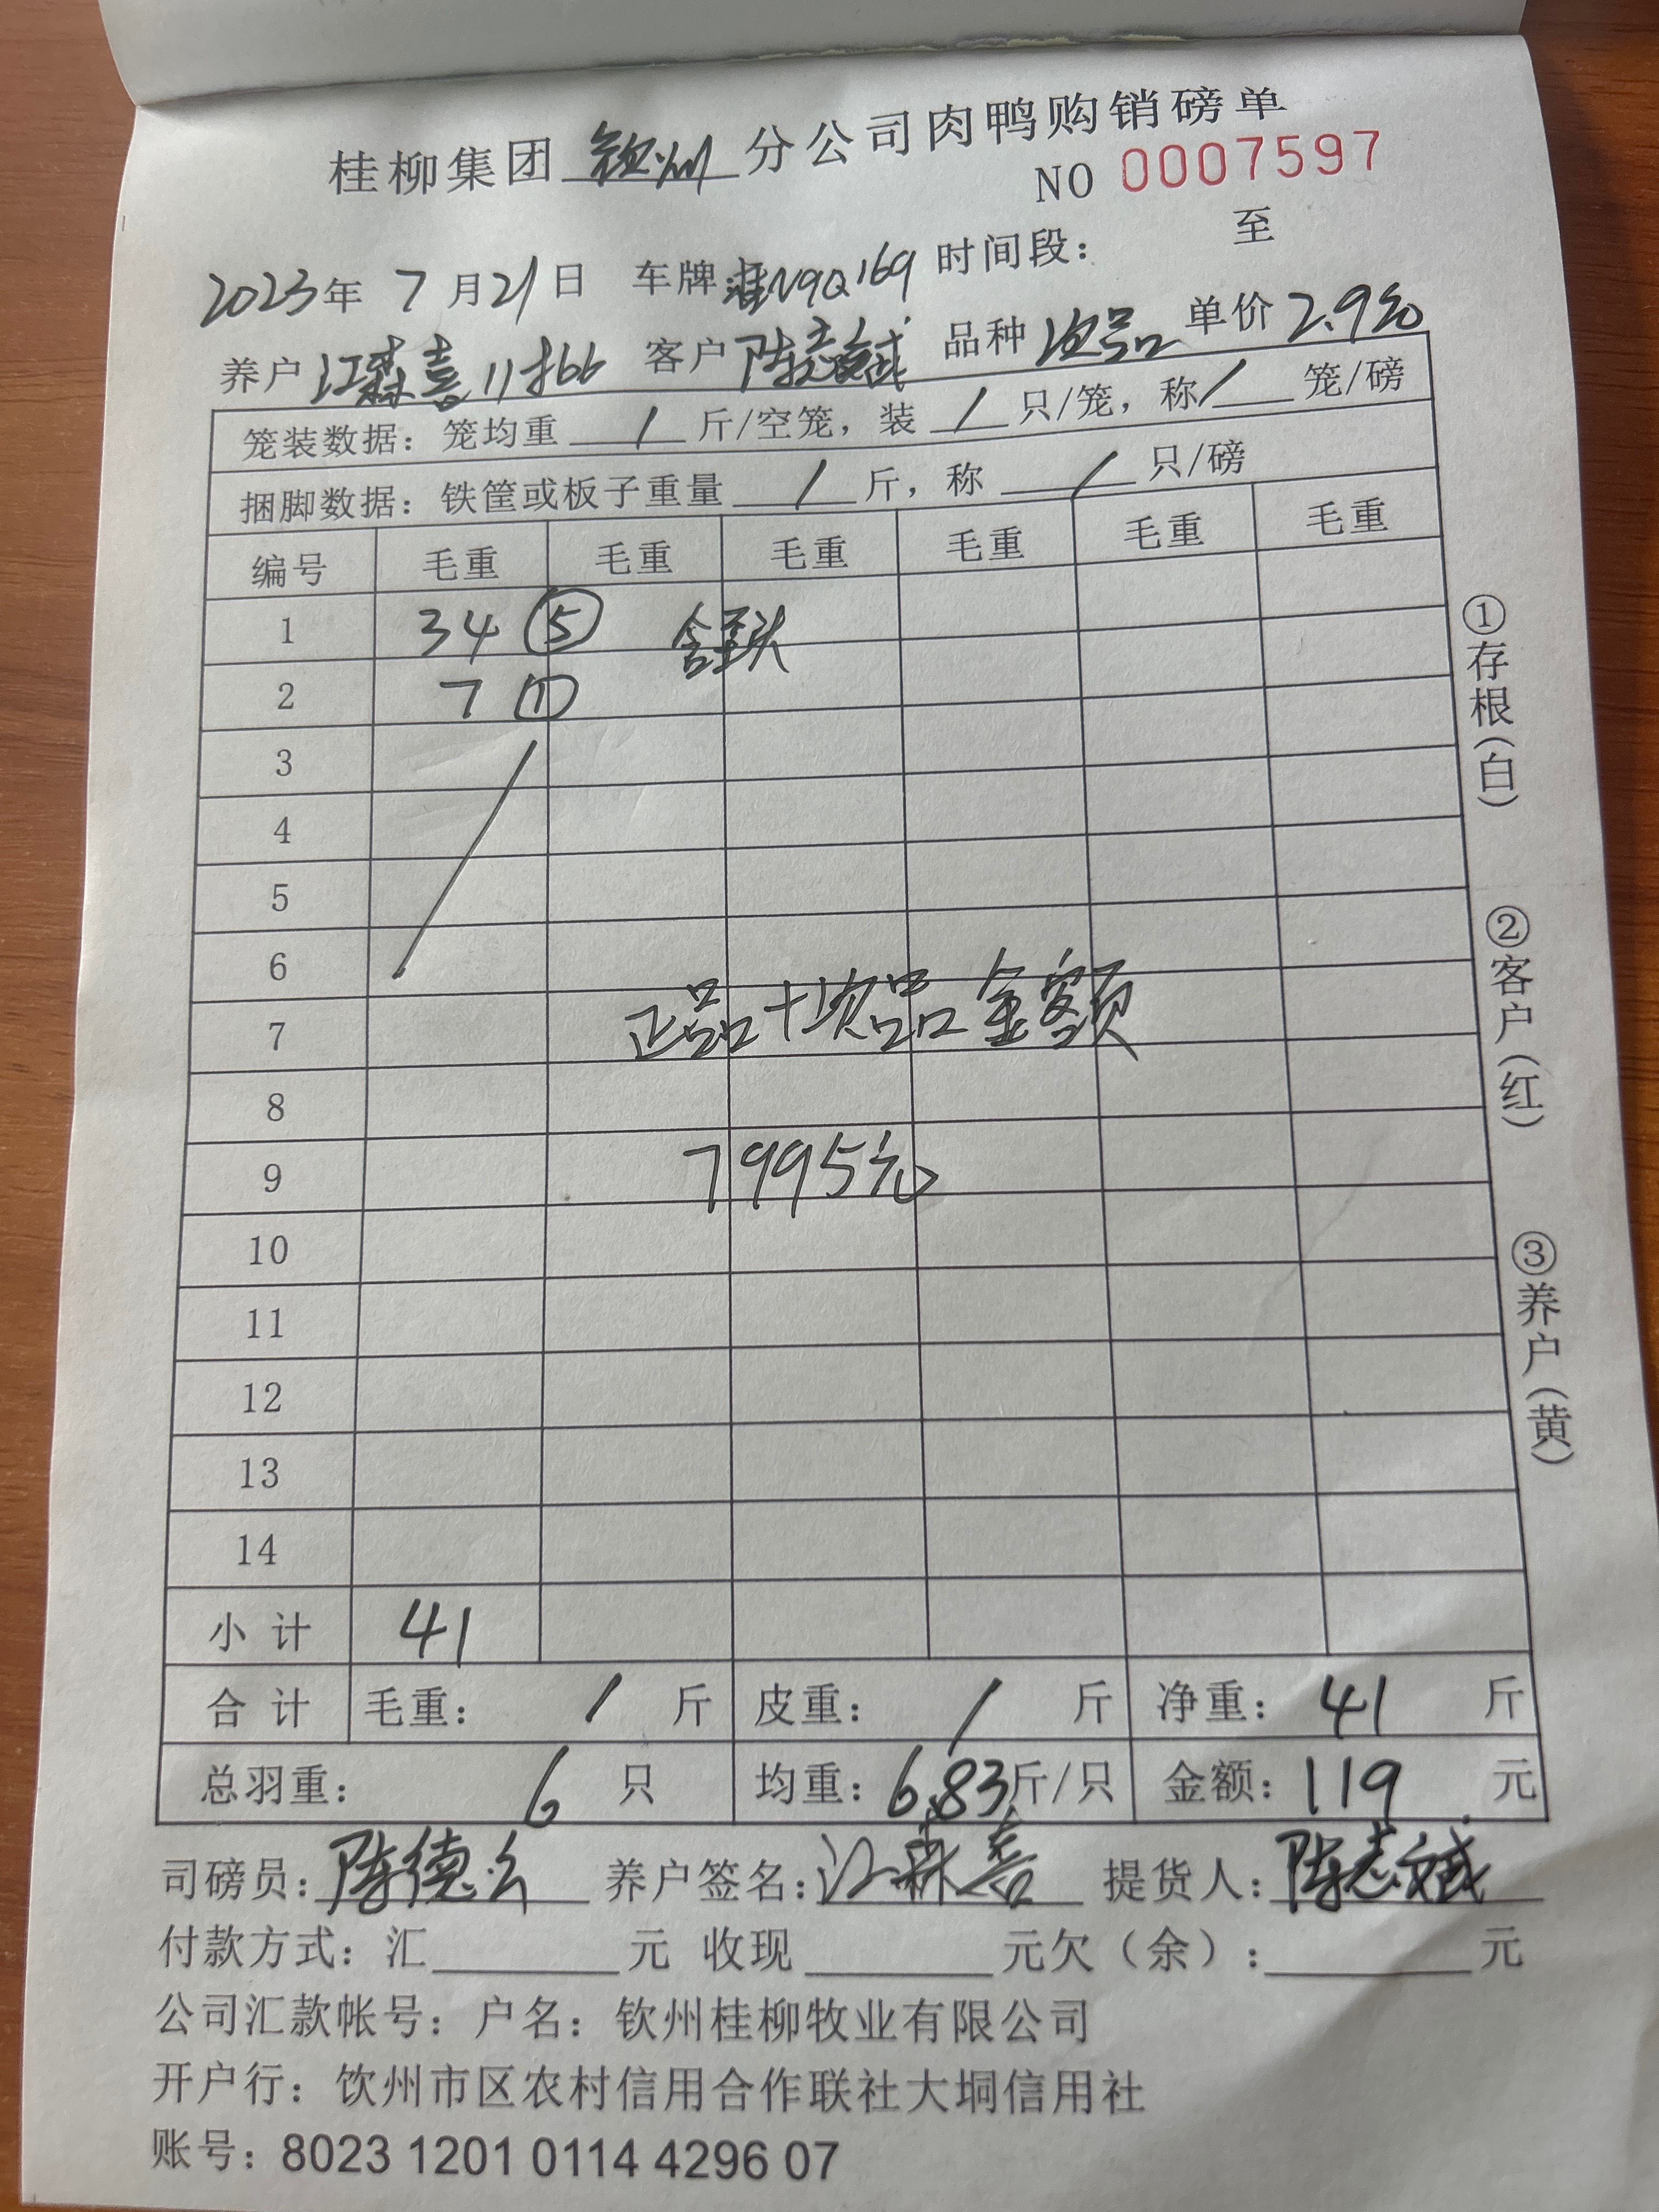 桂柳集团 钦州 分公司肉鸭购销磅单
NO 0007597
2023年 7 月 21 日 车牌: 桂N9Q169 时间段: 至
养户 江森喜 11批66 客户 陈志斌 品种 次品 单价 2.90
笼装数据: 笼均重 / 斤/空笼, 装 / 只/笼, 称 / 笼/磅
捆脚数据: 铁筐或板子重量 / 斤, 称 / 只/磅
编号 毛重 毛重 毛重 毛重 毛重 毛重
1 34 ⑤
2 7 ①
3
4
5
6
7 正品+次品金额
8
9 7995元
10
11
12
13
14
小计 41
合计 毛重: / 斤 皮重: / 斤 净重: 41 斤
总羽重: 6 只 均重: 6.83斤/只 金额: 119 元
①存根(白)
②客户(红)
③养户(黄)
司磅员: 陈德 养户签名: 江森喜 提货人: 陈志斌
付款方式: 汇 元 收现 元欠(余): 元
公司汇款帐号: 户名: 钦州桂柳牧业有限公司
开户行: 饮州市区农村信用合作联社大垌信用社
账号: 8023 1201 0114 4296 07